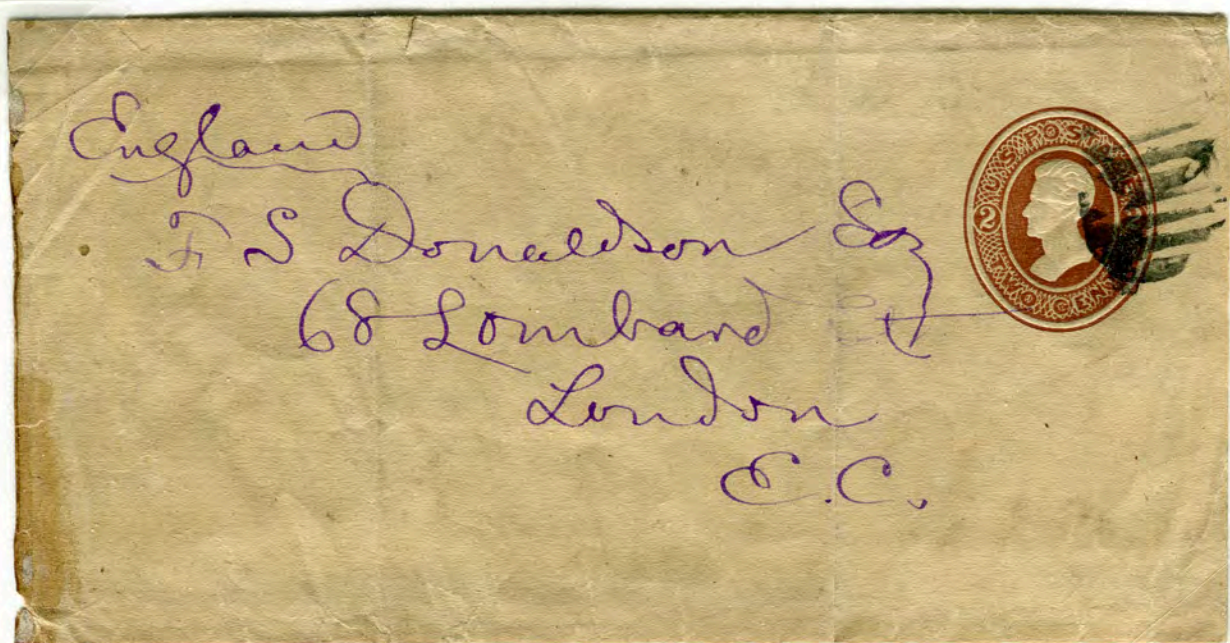 England
F S Donaldson Esq
68 Lombard St
London
E.C.
U.S. POSTAGE
2
TWO CENTS